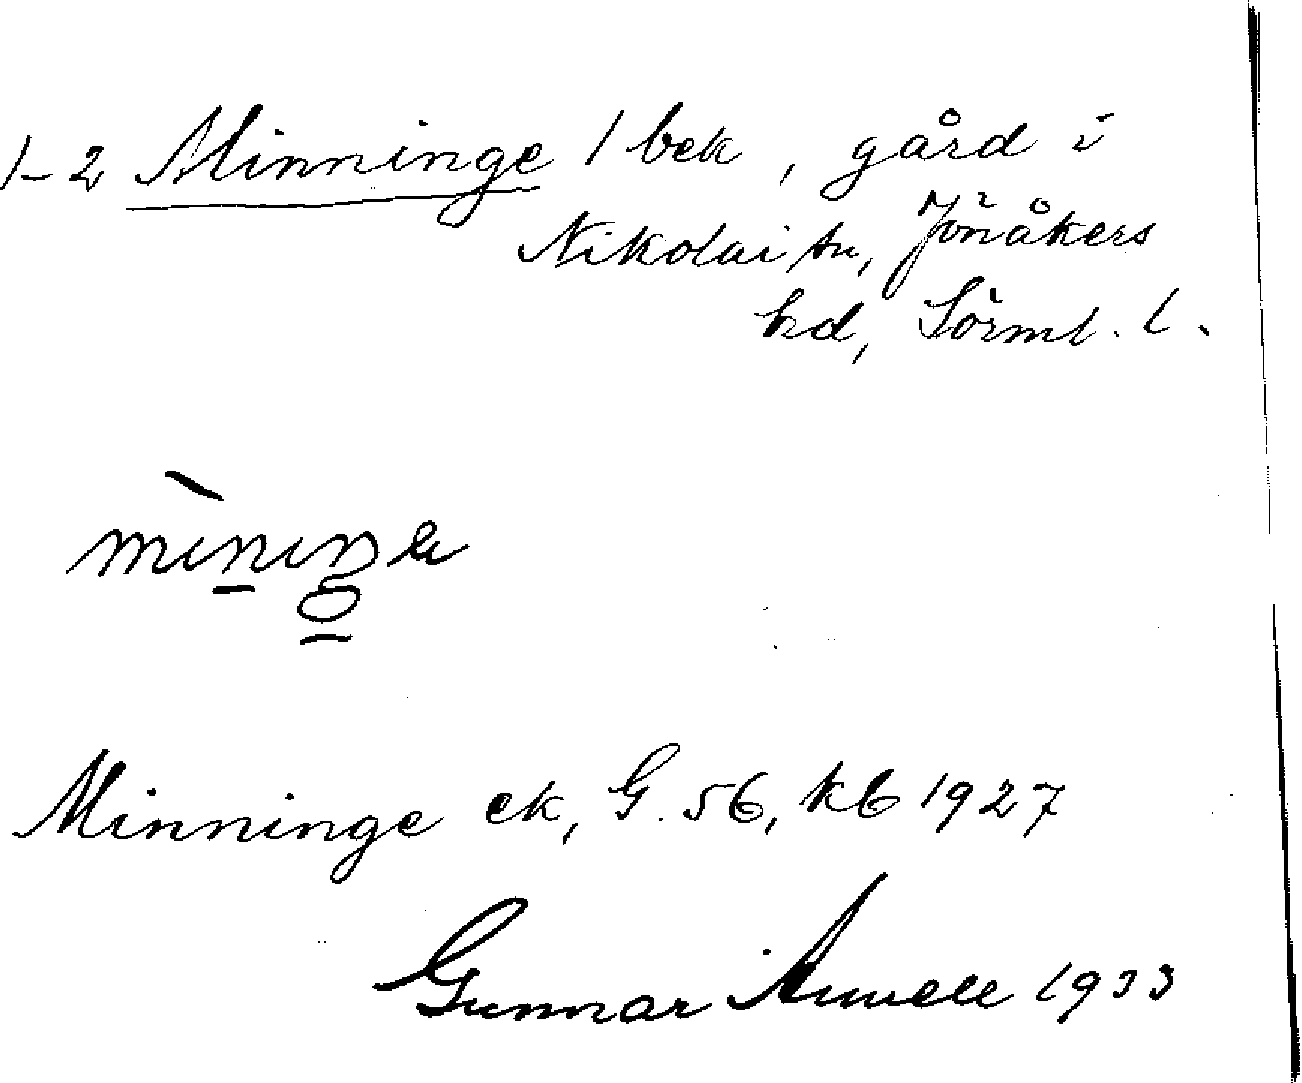 1-2 Minninge / bek, gård i
Nikolai sn, Jönåkers
hd, Sörml. l.
mìninge
Minninge ek, G. 56, kb 1927
Gunnar 1933